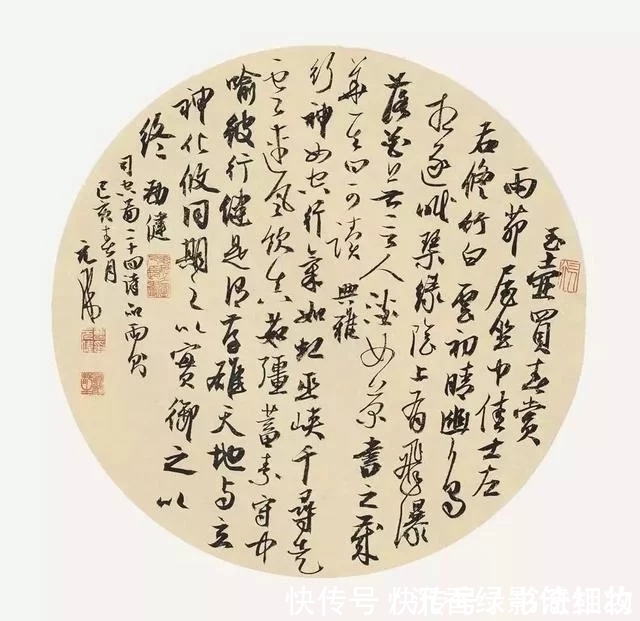 玉壺買春賞
雨茆屋坐中佳士左
右脩竹白雲初晴幽鳥
相逐眠琴綠陰上有飛瀑
落花无言人澹如菊書之歲
華其曰可讀 典雅
行神如空行氣如虹巫峽千尋走
雲連風飲真茹彊蓄素守中
喻彼行健是謂存雄天地與立
神化攸同期之以實御之以
終 勁健
司空圖二十四詩品兩則
己亥春月
快传号